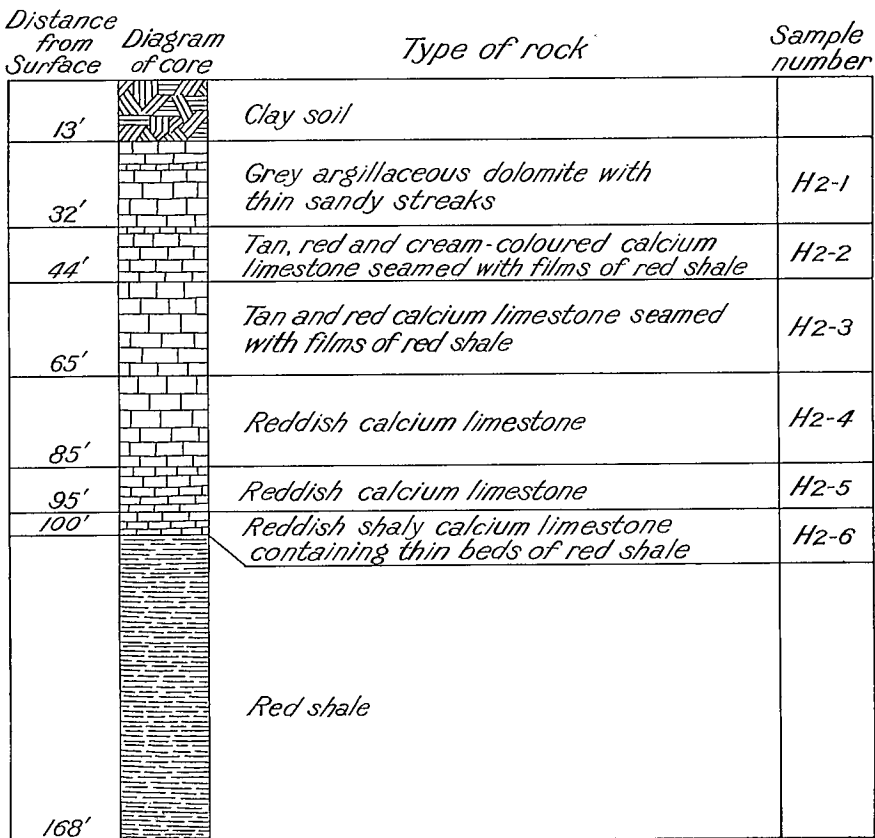 Distance from Surface
Diagram of core
Type of rock
Sample number
13'
Clay soil
32'
Grey argillaceous dolomite with
thin sandy streaks
H2-1
44'
Tan, red and cream-coloured calcium
limestone seamed with films of red shale
H2-2
65'
Tan and red calcium limestone seamed
with films of red shale
H2-3
85'
Reddish calcium limestone
H2-4
95'
Reddish calcium limestone
H2-5
100'
Reddish shaly calcium limestone
containing thin beds of red shale
H2-6
Red shale
168'